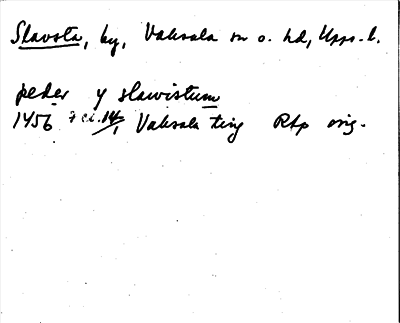 Slavsta, by, Vaksala sn o. hd, Upps. l.
peder y slawistum
1456 14/1 Vaksala ting RAp orig.